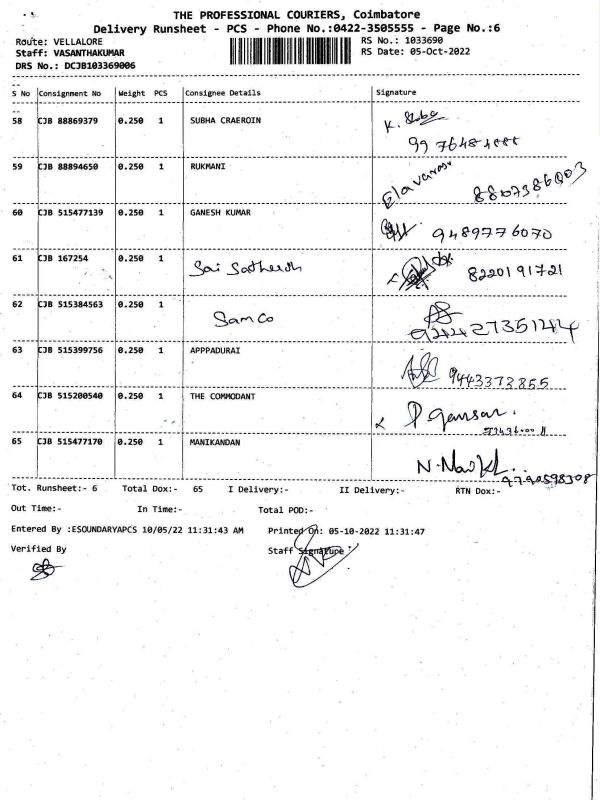 THE PROFESSIONAL COURIERS, Coimbatore
Delivery Runsheet - PCS - Phone No.:0422-3505555 - Page No.:6
Route: VELLALORE RS No.: 1033690
Staff: VASANTHAKUMAR RS Date: 05-Oct-2022
DRS No.: DCJB103369006
S No Consignment No Weight PCS Consignee Details Signature
58 CJB 88869379 0.250 1 SUBHA CRAEROIN
59 CJB 88894650 0.250 1 RUKMANI 8807386003
60 CJB 515477139 0.250 1 GANESH KUMAR 9489776070
61 CJB 167254 0.250 1 Sai 8220191721
62 CJB 515384563 0.250 1 Samco
63 CJB 515399756 0.250 1 APPPADURAI 9443373855
64 CJB 515200540 0.250 1 THE COMMODANT
65 CJB 515477170 0.250 1 MANIKANDAN 9790598308
Tot. Runsheet:- 6 Total Dox:- 65 I Delivery:- II Delivery:- RTN Dox:-
Out Time:- In Time:- Total POD:-
Entered By :ESOUNDARYAPCS 10/05/22 11:31:43 AM Printed On: 05-10-2022 11:31:47
Verified By Staff Signature